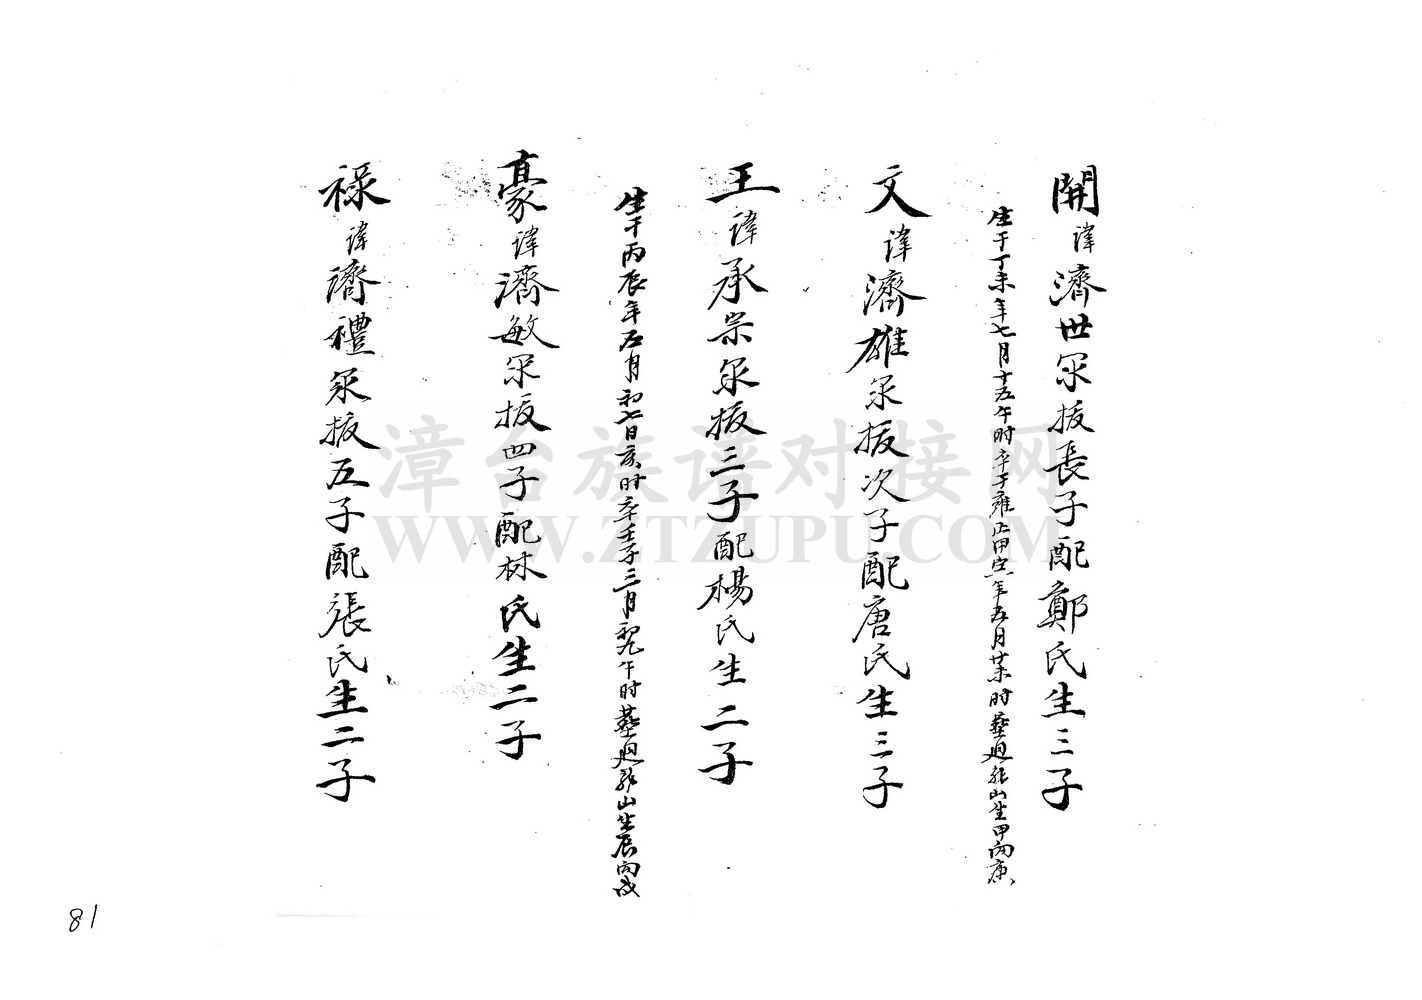 開諱濟世眾振長子配鄭氏生三子
生于丁未年七月十五午时卒于雍正甲寅年五月廿未时葬迴龍山坐甲向庚
文諱濟雄眾振次子配唐氏生三子
王諱承宗眾振三子配楊氏生二子
生于丙辰年五月初七日亥时卒壬子三月初九午时葬迴龍山坐辰向戌
豪諱濟敏眾振四子配林氏生二子
祿諱濟禮眾振五子配張氏生二子
漳台族谱对接网
WWW.ZTZUPU.COM
81